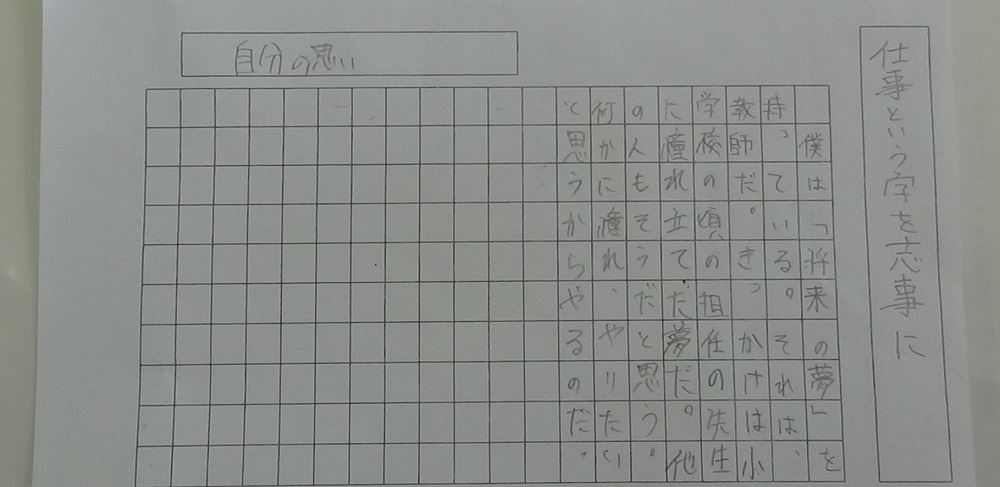 仕事という字を志事に
自分の思い
僕は「将来の夢」を
持っている。それは、
教師だ。きっかけは小
学校の頃の担任の先生
に憧れ立てだ夢だ。他
の人もそうだと思う。
何かに憧れ、やりたい
と思うからやるのだ、